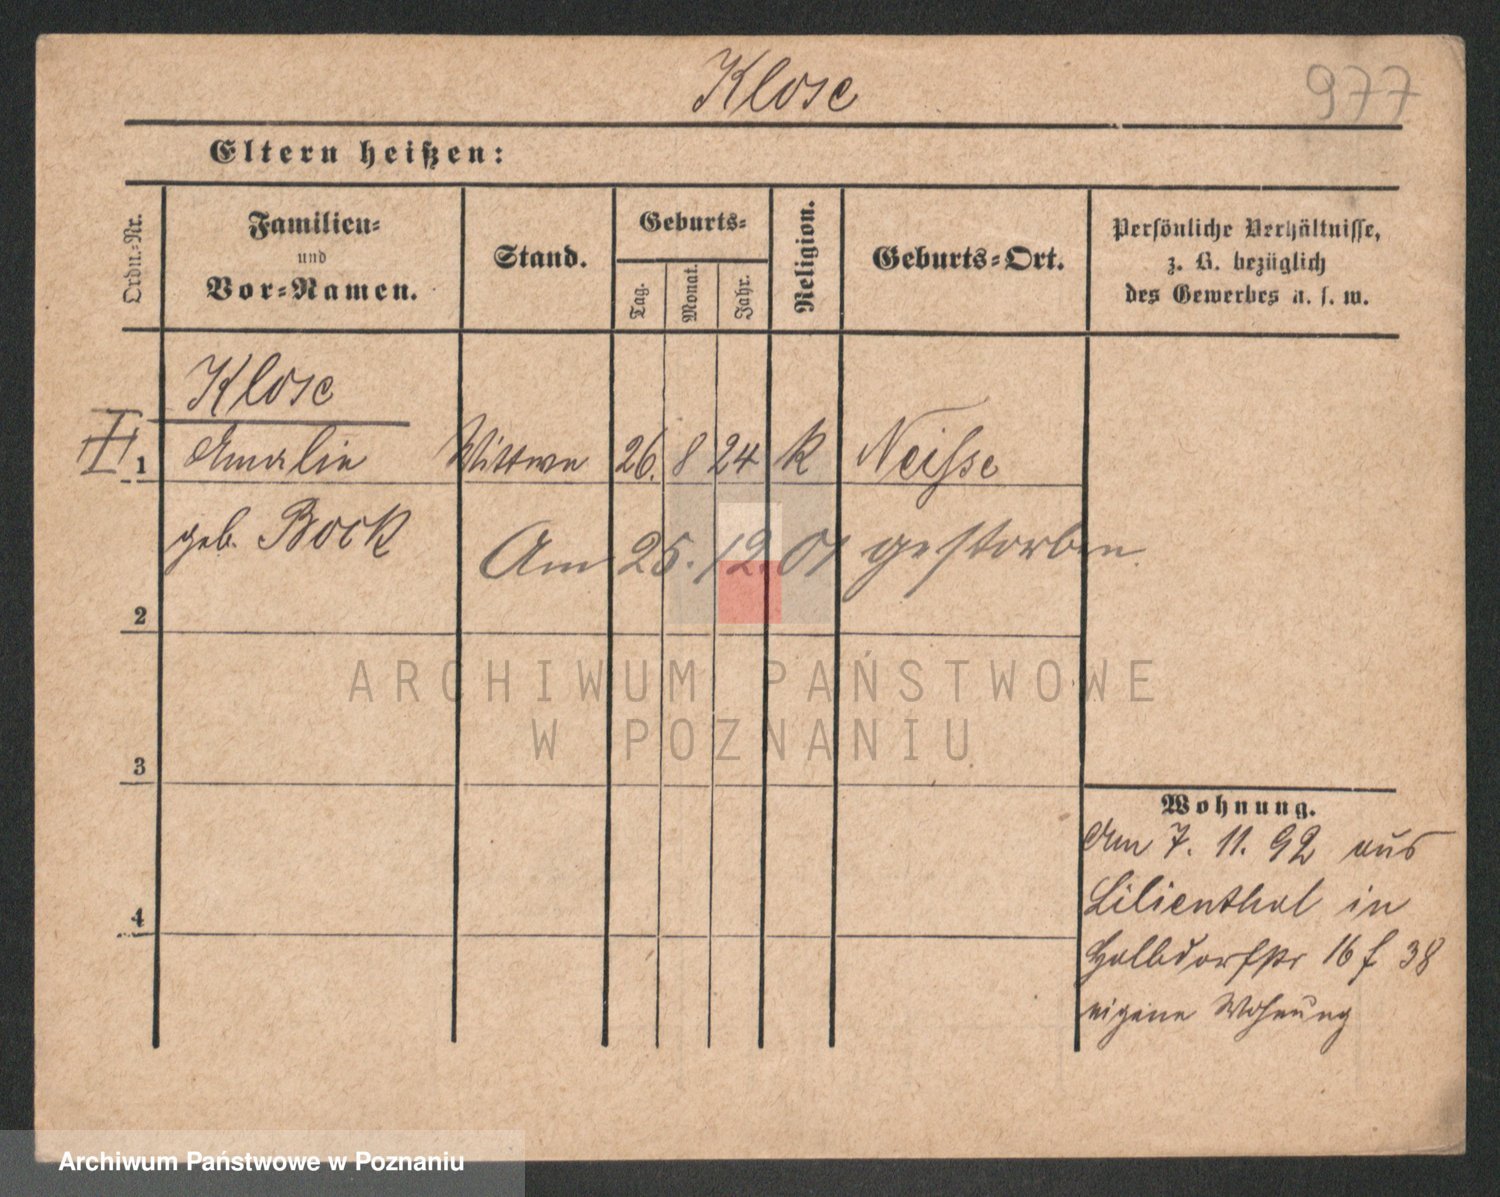 Klose
977
Eltern heißen:
Ordn.-Nr.
Familien-
und
Vor-Namen.
Stand.
Geburts-
Tag.
Monat.
Jahr.
Religion.
Geburts-Ort.
Persönliche Verhältnisse,
z. B. bezüglich
des Gewerbes u. s. w.
Klose
1 Amalie Wittwe 26. 8 24 K Neisse
geb. Bock
Am 25.12.01 gestorben
2
ARCHIWUM PAŃSTWOWE
W POZNANIU
3
Wohnung.
Am 7. 11. 92 aus
Lilienthal in
Halbdorfstr 16 f 38
eigene Wohnung
4
Archiwum Państwowe w Poznaniu